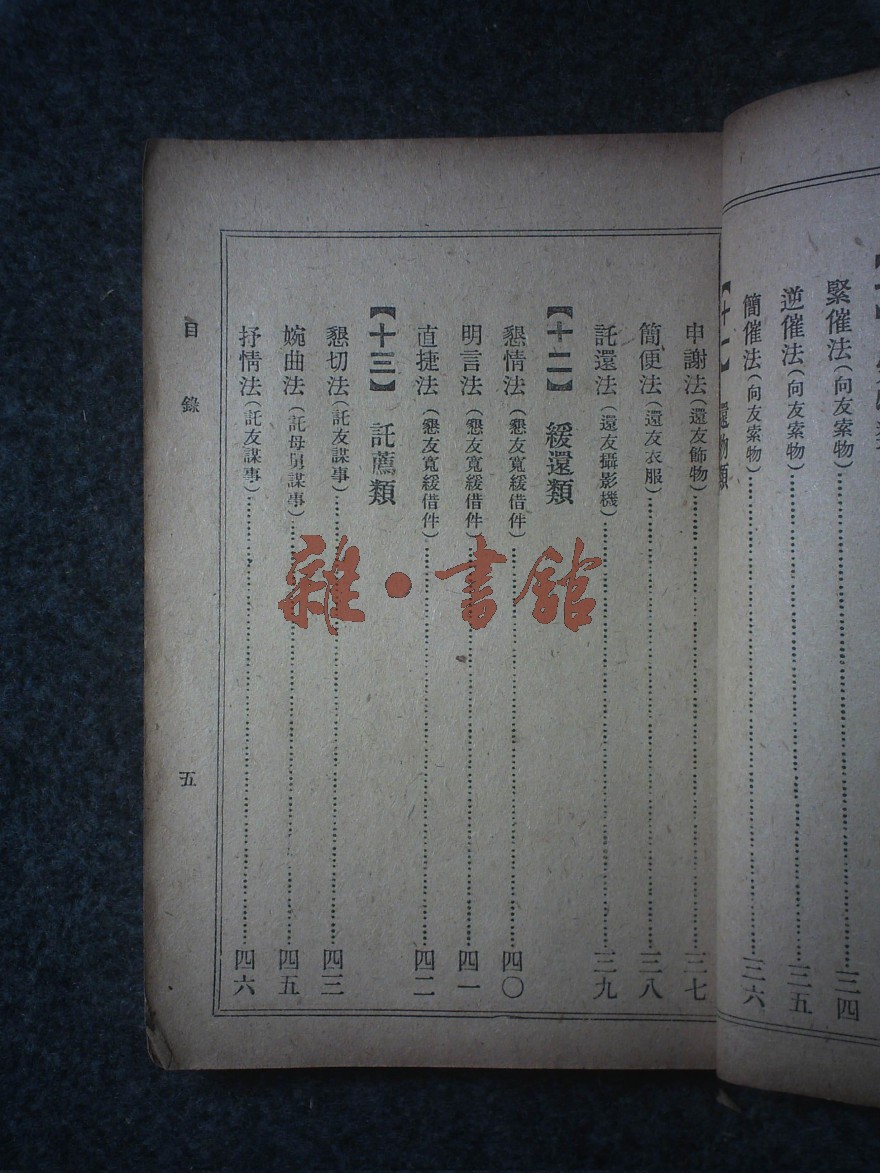 緊催法(向友索物)……三四
逆催法(向友索物)……三五
簡催法(向友索物)……三六
【十一】 還物類
申謝法(還友飾物)……三七
簡便法(還友衣服)……三八
託還法(還友攝影機)……三九
【十二】 緩還類
懇情法(懇友寬緩借件)……四〇
明言法(懇友寬緩借件)……四一
直捷法(懇友寬緩借件)……四二
【十三】 託薦類
懇切法(託友謀事)……四三
婉曲法(託母舅謀事)……四五
抒情法(託友謀事)……四六
目錄
五
雜·書館